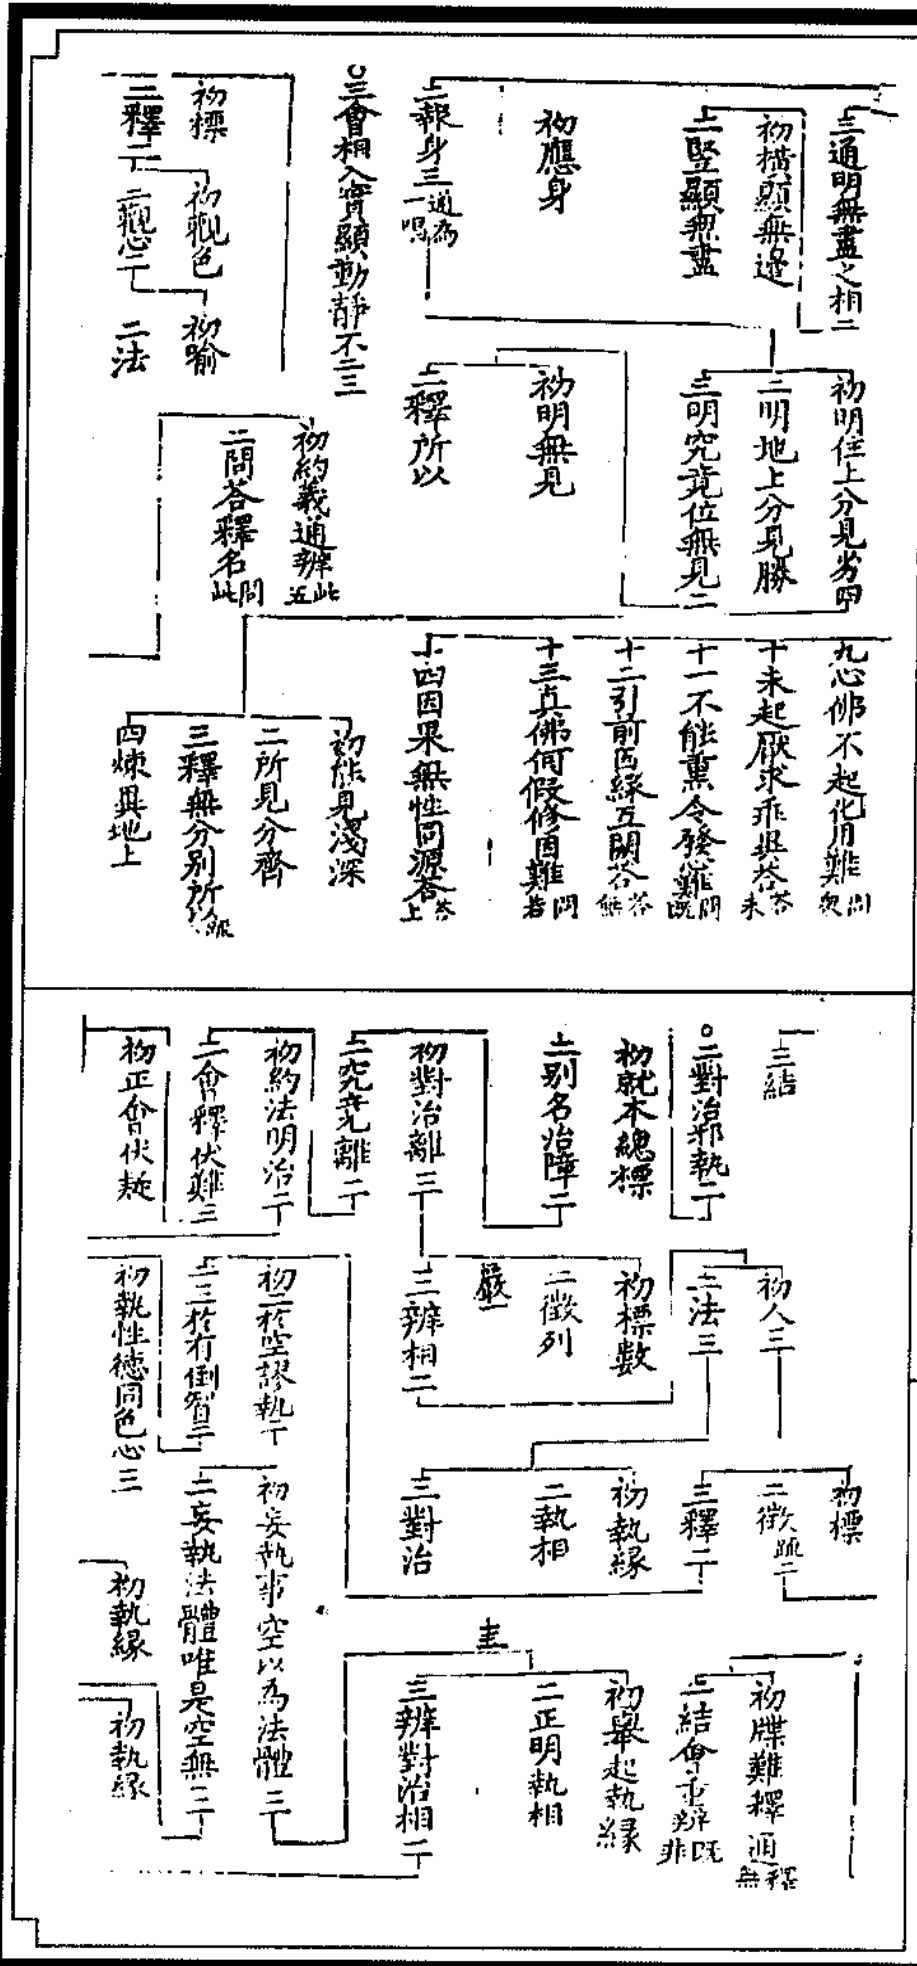 三通明無盡之相二
初橫顯無邊
二豎顯無盡
初應身
二報身三
通為
一唱
○三會相入實顯動靜不二三
初標
二釋二
初觀色
二觀心二
初喻
二法
初明住上分見劣四
二明地上分見勝
三明究竟位無見二
初明無見
二釋所以
初約義通辨
此
五
二問答釋名
問
此
九心佛不起化用難
問
十未起厭求乖與答
答
未
十一不能熏令發心難
問
既
十二引前因緣互闕答
答
無
十三真佛何假修因難
問
若
十四因果無性同源答
答
上
初能見淺深
二所見分齊
三釋無分別所
四煉異地上
三結
○二對治邪執二
初就本總標
二別名治障二
初對治離三
二究竟離二
初約法明治二
二會釋伏難三
初正會伏疑
初人三
二法三
初標數
二徵列
三辨相二
初二於空謬執二
二三於有倒智二
初執性德同色心三
初標
二徵疏二
三釋二
初執緣
二執相
三對治
初妄執事空以為法體三
二妄執法體唯是空無三
初執緣
初牒難釋通
釋
無
二結會重辨
既
非
初舉起執緣
二正明執相
三辨對治相二
初執緣